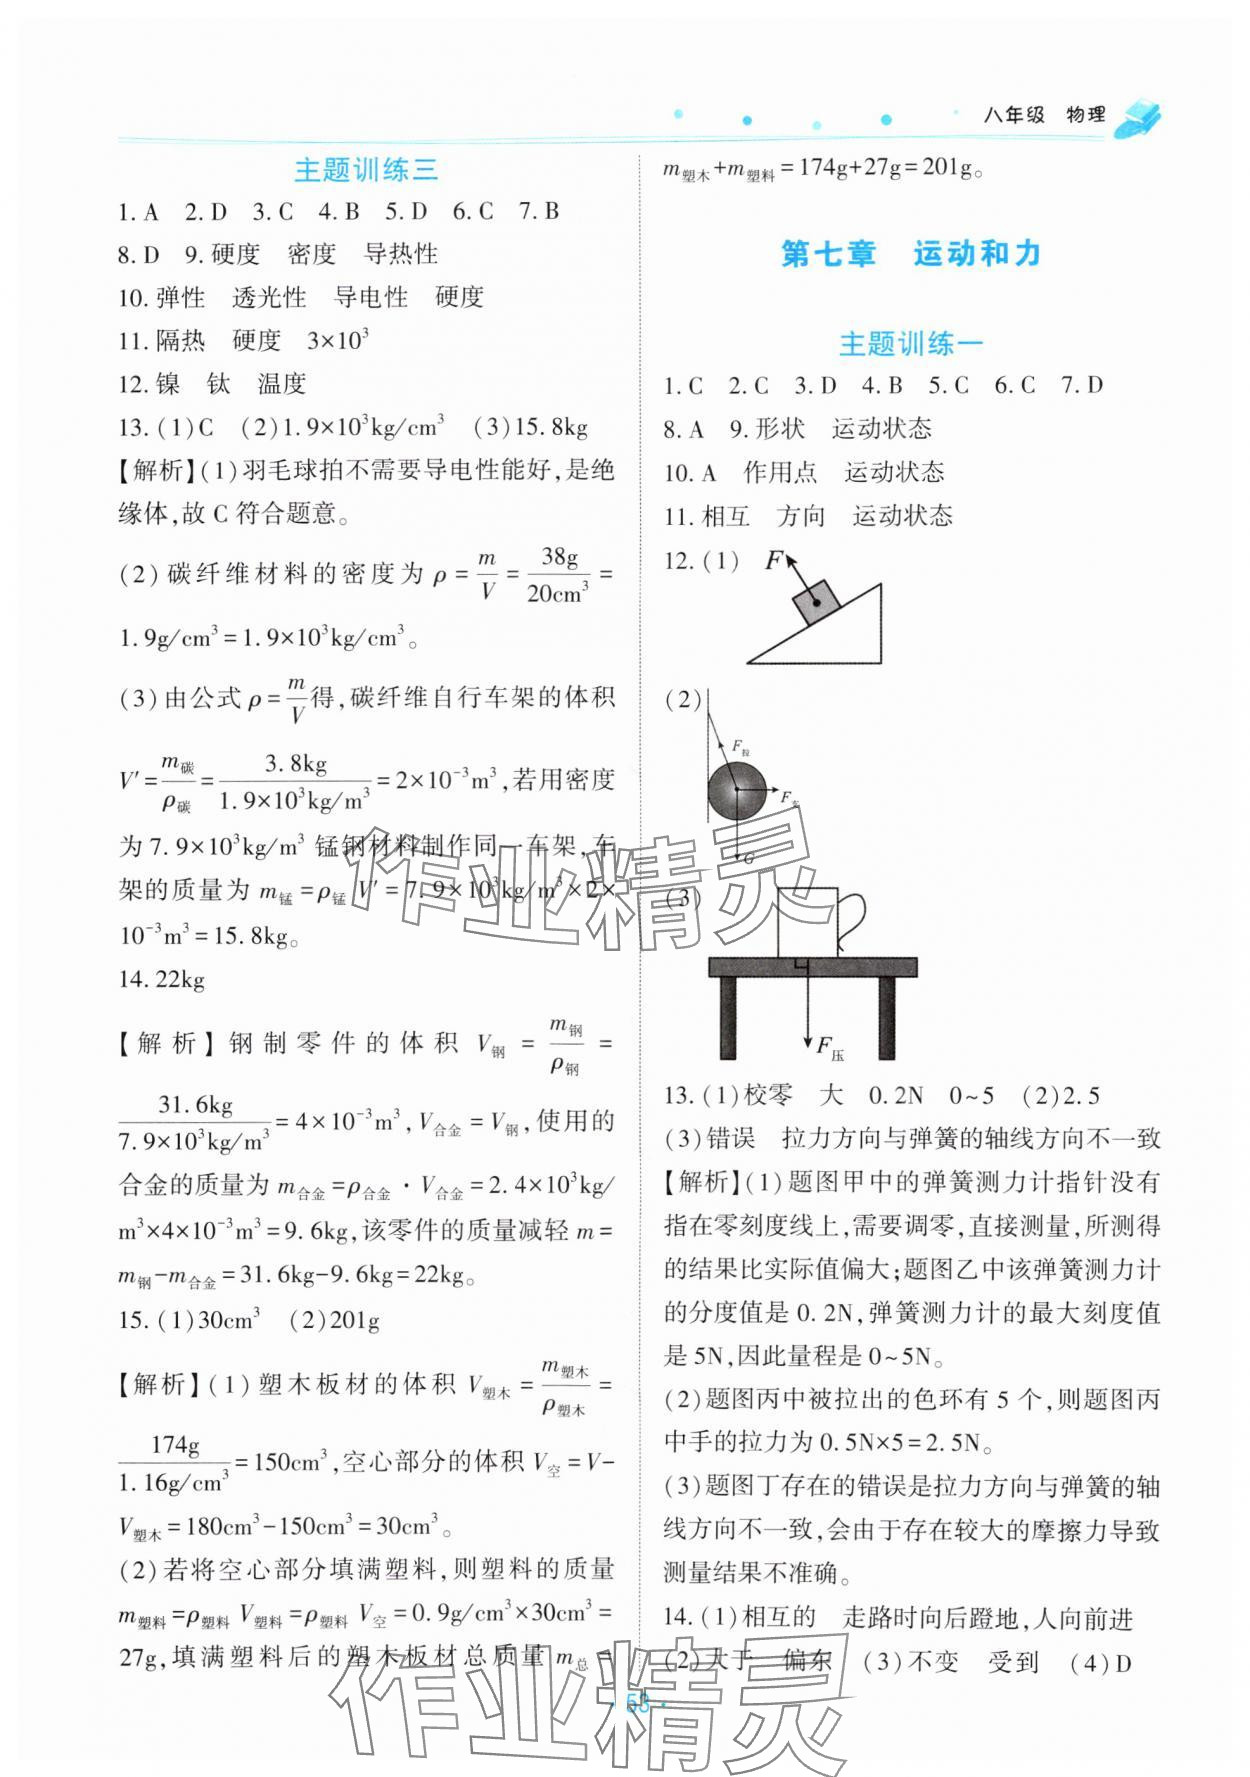 八年级 物理
主题训练三
1.A 2.D 3.C 4.B 5.D 6.C 7.B
8.D 9.硬度 密度 导热性
10.弹性 透光性 导电性 硬度
11.隔热 硬度 3×10³
12.镍 钛 温度
13.(1)C (2)1.9×10³kg/cm³ (3)15.8kg
【解析】(1)羽毛球拍不需要导电性能好,是绝
缘体,故C符合题意。
(2)碳纤维材料的密度为ρ=m/V=38g/20cm³=
1.9g/cm³=1.9×10³kg/cm³。
(3)由公式ρ=m/V得,碳纤维自行车架的体积
V′=m碳/ρ碳=3.8kg/1.9×10³kg/m³=2×10⁻³m³,若用密度
为7.9×10³kg/m³锰钢材料制作同一车架,车
架的质量为m锰=ρ锰V′=7.9×10³kg/m³×2×
10⁻³m³=15.8kg。
14.22kg
【解析】钢制零件的体积V钢=m钢/ρ钢=
31.6kg/7.9×10³kg/m³=4×10⁻³m³,V合金=V钢,使用的
合金的质量为m合金=ρ合金·V合金=2.4×10³kg/
m³×4×10⁻³m³=9.6kg,该零件的质量减轻m=
m钢-m合金=31.6kg-9.6kg=22kg。
15.(1)30cm³ (2)201g
【解析】(1)塑木板材的体积V塑木=m塑木/ρ塑木=
174g/1.16g/cm³=150cm³,空心部分的体积V空=V-
V塑木=180cm³-150cm³=30cm³。
(2)若将空心部分填满塑料,则塑料的质量
m塑料=ρ塑料V塑料=ρ塑料V空=0.9g/cm³×30cm³=
27g,填满塑料后的塑木板材总质量m总=
m塑木+m塑料=174g+27g=201g。
第七章 运动和力
主题训练一
1.C 2.C 3.D 4.B 5.C 6.C 7.D
8.A 9.形状 运动状态
10.A 作用点 运动状态
11.相互 方向 运动状态
12.(1) F
(2)
F拉
F支
G
(3)
F压
13.(1)校零 大 0.2N 0~5 (2)2.5
(3)错误 拉力方向与弹簧的轴线方向不一致
【解析】(1)题图甲中的弹簧测力计指针没有
指在零刻度线上,需要调零,直接测量,所测得
的结果比实际值偏大;题图乙中该弹簧测力计
的分度值是0.2N,弹簧测力计的最大刻度值
是5N,因此量程是0~5N。
(2)题图丙中被拉出的色环有5个,则题图丙
中手的拉力为0.5N×5=2.5N。
(3)题图丁存在的错误是拉力方向与弹簧的轴
线方向不一致,会由于存在较大的摩擦力导致
测量结果不准确。
14.(1)相互的 走路时向后蹬地,人向前进
(2)大于 偏东 (3)不变 受到 (4)D
·53·
作业精灵
作业精灵